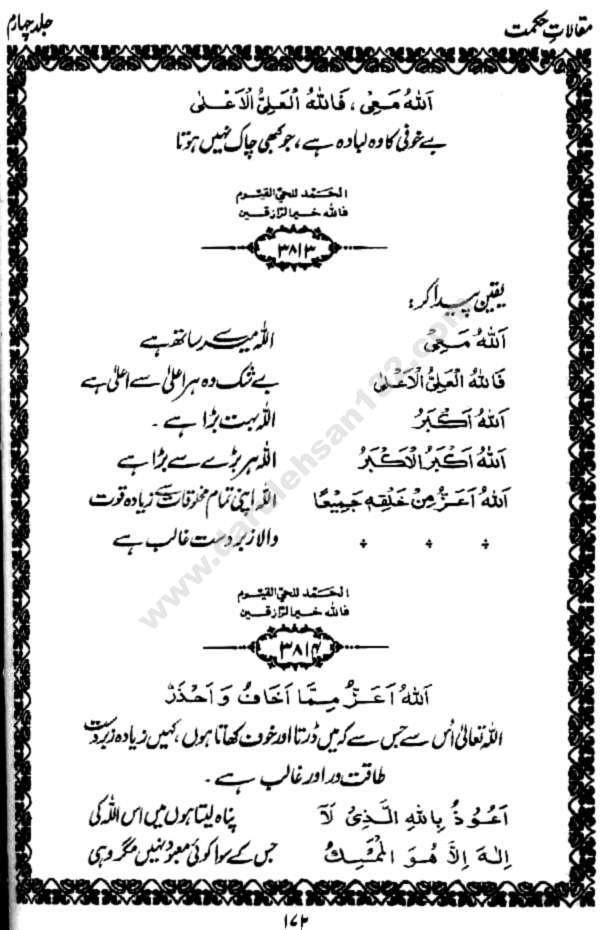 مقالاتِ حکمت
جلد چہارم
اَللهُ مَعِیْ ، فَاللهُ الْعَلِیُّ الْاَعْلٰی
بے خوفی کا وہ لبادہ ہے، جو کبھی چاک نہیں ہوتا
الحمد للحی القیوم
فاللہ خیرالرازقین
۳۸۱۳
یقین پیدا کر:
اَللهُ مَعِیْ اللہ میرے ساتھ ہے
فَاللهُ الْعَلِیُّ الْاَعْلٰی بے شک وہ ہر اعلیٰ سے اعلیٰ ہے
اَللهُ اَکْبَرُ اللہ بہت بڑا ہے ۔
اَللهُ اَکْبَرُ الْاَکْبَرُ اللہ ہر بڑے سے بڑا ہے
اَللهُ اَعَزُّ مِنْ خَلْقِهٖ جَمِیْعًا اللہ اپنی تمام مخلوقات سے زیادہ قوت
والا زبردست غالب ہے
الحمد للحی القیوم
فاللہ خیرالرازقین
۳۸۱۴
اَللهُ اَعَزُّ مِمَّا اَخَافُ وَ اَحْذَرُ
اللہ تعالیٰ اُس سے جس سے کہ میں ڈرتا اور خوف کھاتا ہوں، کہیں زیادہ زبردست
طاقت ور اور غالب ہے ۔
اَعُوْذُ بِاللهِ الَّذِیْ لَآ پناہ لیتا ہوں میں اس اللہ کی
اِلٰهَ اِلَّا هُوَ الْمُمْسِكُ جس کے سوا کوئی معبود نہیں مگر وہی
۱۷۲
www.darulehsan132.com